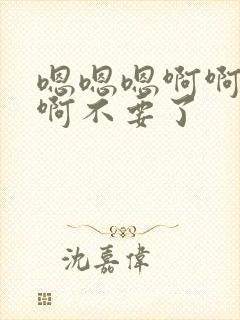 嗯嗯嗯啊啊
啊不要了
沈嘉偉